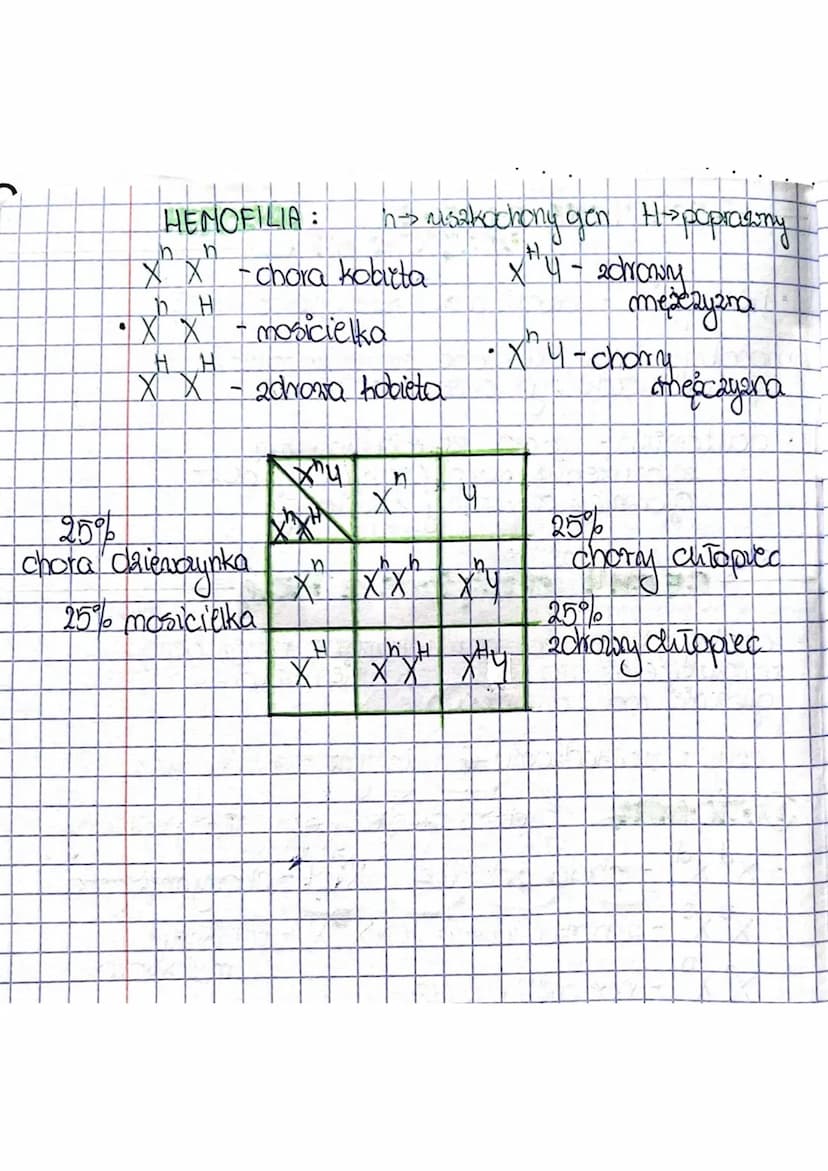 HEMOFILIA: h→ uszkodzony gen H→poprawny
XʰXʰ - chora kobieta
XʰXᴴ - nosicielka
XᴴXᴴ - zdrowa kobieta
XᴴY - zdrowy
mężczyzna
XʰY - chory
mężczyzna
XʰY
XʰXᴴ
Xʰ Y
Xʰ XʰXʰ XʰY
Xᴴ XʰXᴴ XᴴY
25%
chora dziewczynka
25% nosicielka
25%
chory chłopiec
25%
zdrowy chłopiec